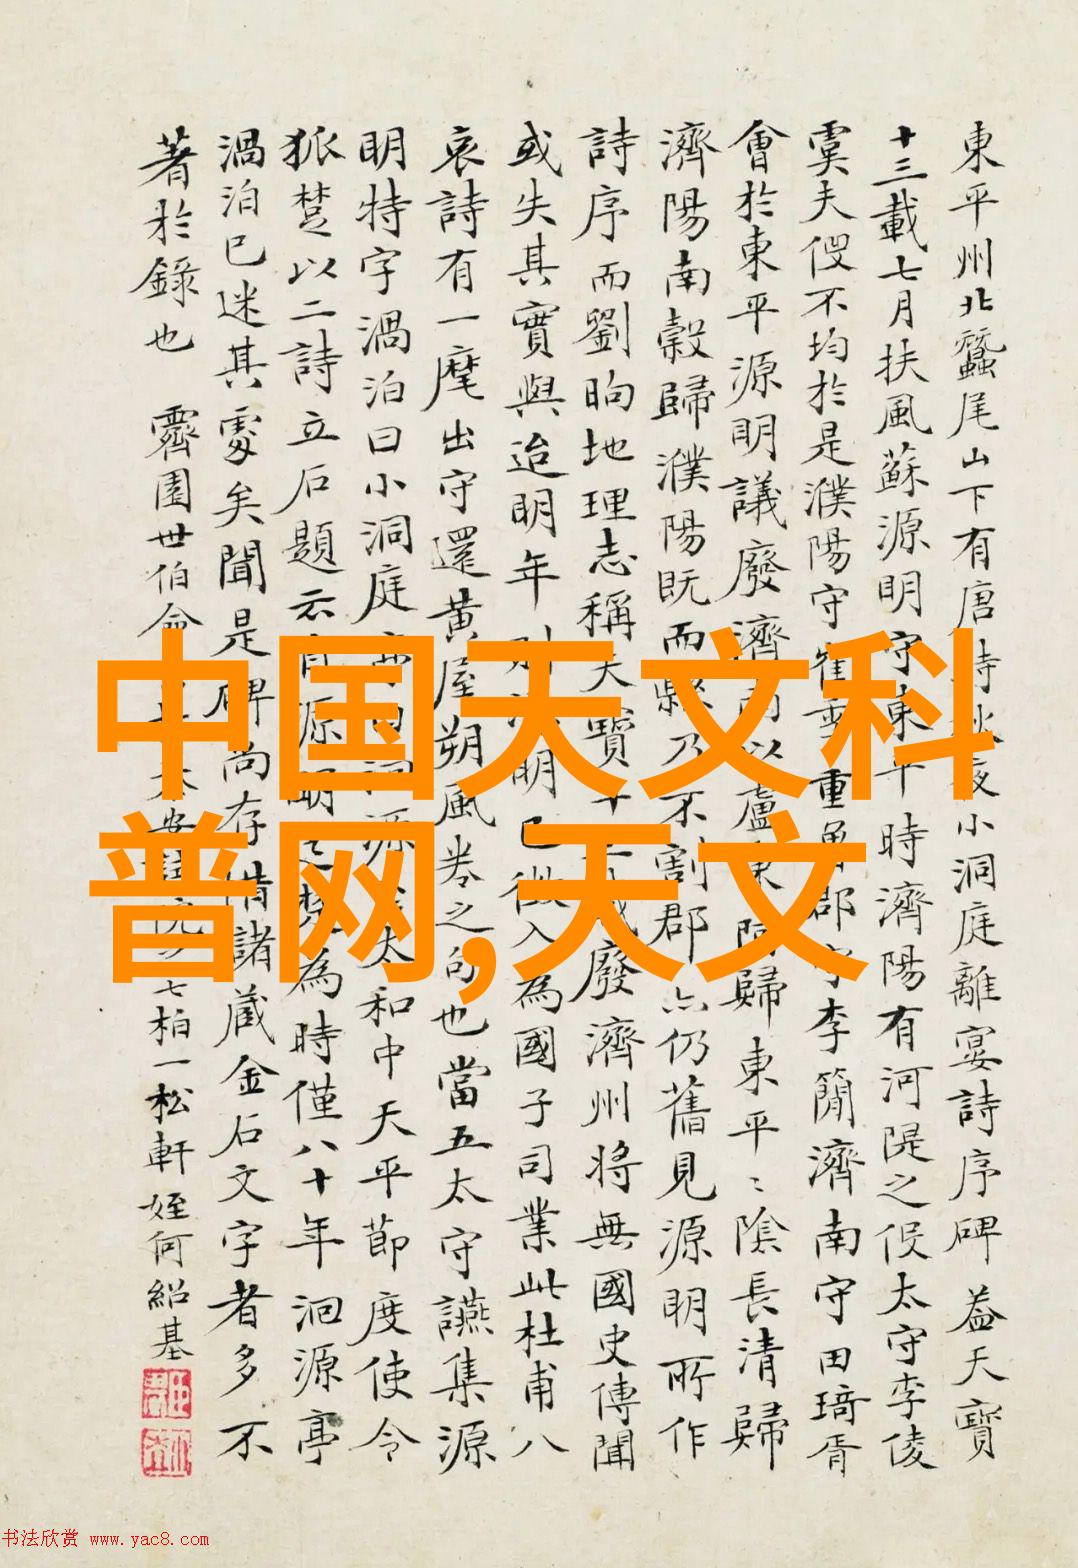 東平州北蠶尾山下有唐時秋夜小洞庭離宴詩序碑 蓋天寶
十三載七月扶風蘇源明守東平時濟陽有河隄之役太守李倰
虞夫伇不均於是濮陽守崔 重魯郡守李簡濟南守田琦胥
會於東平源明議廢濟 以盧東 阿歸東平平陰長清歸
濟陽南榖歸濮陽既而縣乃不割郡亦仍舊見源明所作
詩序而劉昫地理志稱天寶十 載廢濟州將無國史傳聞
或失其實與迨明年則源明已徵入為國子司業此杜甫八
哀詩有一麾出守還黃屋朔風卷之句也當五太守讌集源
明特字渦泊曰小洞庭 洄源 太和中天平節度使令
狐楚以二詩立石題云有源明之 為時僅八十年洄源亭
渦泊已迷其處矣聞是碑尚存惜諸藏金石文字者多不
著於錄也 霽園世伯命 七柏一松軒姪何紹基
中国天文科
普网,天文
书法欣赏 www.yac8.com